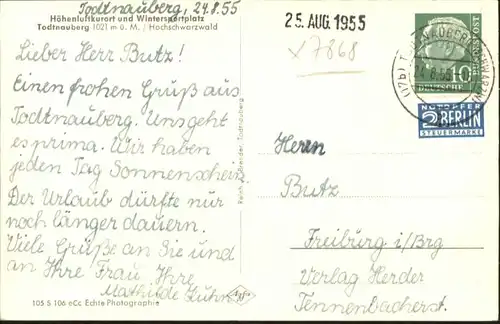 Todtnauberg, 24.8.55
Höhenluftkurort und Wintersportplatz
Todtnauberg 1021 m ü. M. / Hochschwarzwald
Lieber Herr Butz!
Einen frohen Gruß aus
Todtnauberg. Uns geht
es prima. Wir haben
jeden Tag Sonnenschein.
Der Urlaub dürfte nur
noch länger dauern.
Viele Grüße an Sie und
an Ihre Frau Ihre
Mathilde Kühner
105 S 106 eCc Echte Photographie
Todtnauberg
25. AUG. 1955
x 7868
24.8.55
10
DEUTSCHE
NOTOPFER
2 BERLIN
STEUERMARKE
Herrn
Butz
Freiburg i/Brg
Verlag Herder
Tennenbacherst.